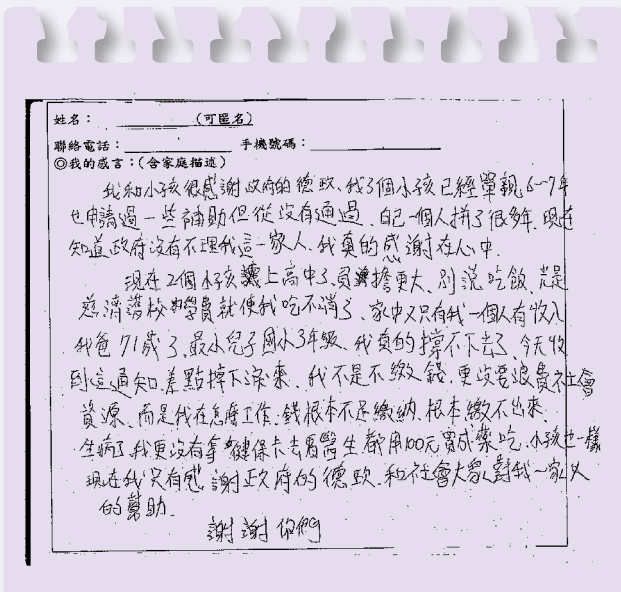 姓名：　　　　　(可匿名)
聯絡電話：　　　　　手機號碼：
◎我的感言：(含家庭描述)
我和小孩很感謝政府的德政、我3個小孩已經單親6~7年
也申請過一些補助但從沒有通過、自己一個人拼了很多年、現在
知道政府沒有不理我這一家人、我真的感謝在心中.
現在2個小孩讀上高中了、負擔更大、別說吃飯、光是
慈濟護校的學費就使我吃不消了、家中又只有我一個人有收入
我爸71歲了、最小兒子國小3年級、我真的撐不下去了、今天收
到這通知、差點掉下淚來、我不是不繳錢、更沒要浪費社會
資源、而是我在怎麼工作、錢根本不足繳納、根本繳不出來
生病了我更沒有拿健保卡去看醫生都用100元買成藥吃、小孩也一樣
現在我只有感謝政府的德政、和社會大眾對我一家人
的幫助.
謝謝你們